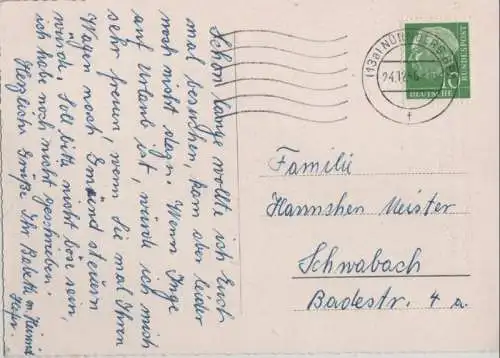 Schon lange wollte ich Euch
mal besuchen, kam aber leider
noch nicht dazu. Wenn Inge
auf Urlaub ist, würde ich mich
sehr freuen, wenn Sie mal Ihren
Wagen nach Gmünd steuern
würde. Soll bitte nicht böse sein,
ich hab noch nicht geschrieben.
Herzliche Grüße Ihr
(13a) NÜRNBERG
24.12.56
f
10
BUNDESPOST
DEUTSCHE
Familie
Hannshen Meister
Schwabach
Badestr. 4 a.